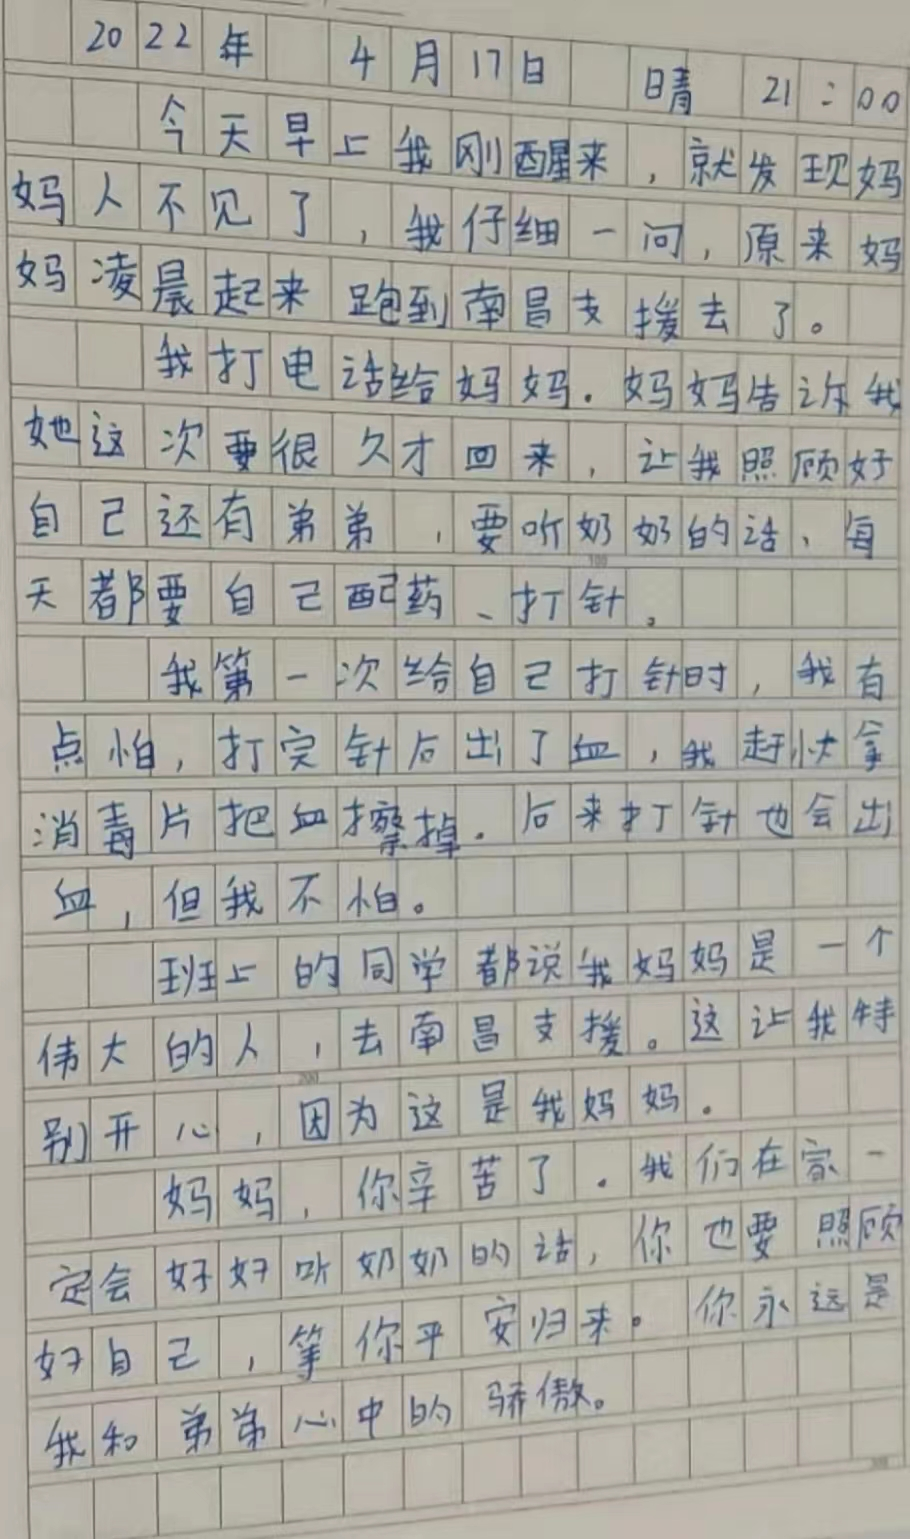 2022年 4月17日 晴 21:00
今天早上我刚醒来，就发现妈
妈人不见了，我仔细一问，原来妈
妈凌晨起来跑到南昌支援去了。
我打电话给妈妈．妈妈告诉我
她这次要很久才回来，让我照顾好
自己还有弟弟，要听奶奶的话、每
天都要自己配药、打针。
我第一次给自己打针时，我有
点怕，打完针后出了血，我赶快拿
消毒片把血擦掉．后来打针也会出
血，但我不怕。
班上的同学都说我妈妈是一个
伟大的人，去南昌支援。这让我特
别开心，因为这是我妈妈．
妈妈，你辛苦了．我们在家一
定会好好听奶奶的话，你也要照顾
好自己，等你平安归来。你永远是
我和弟弟心中的骄傲。